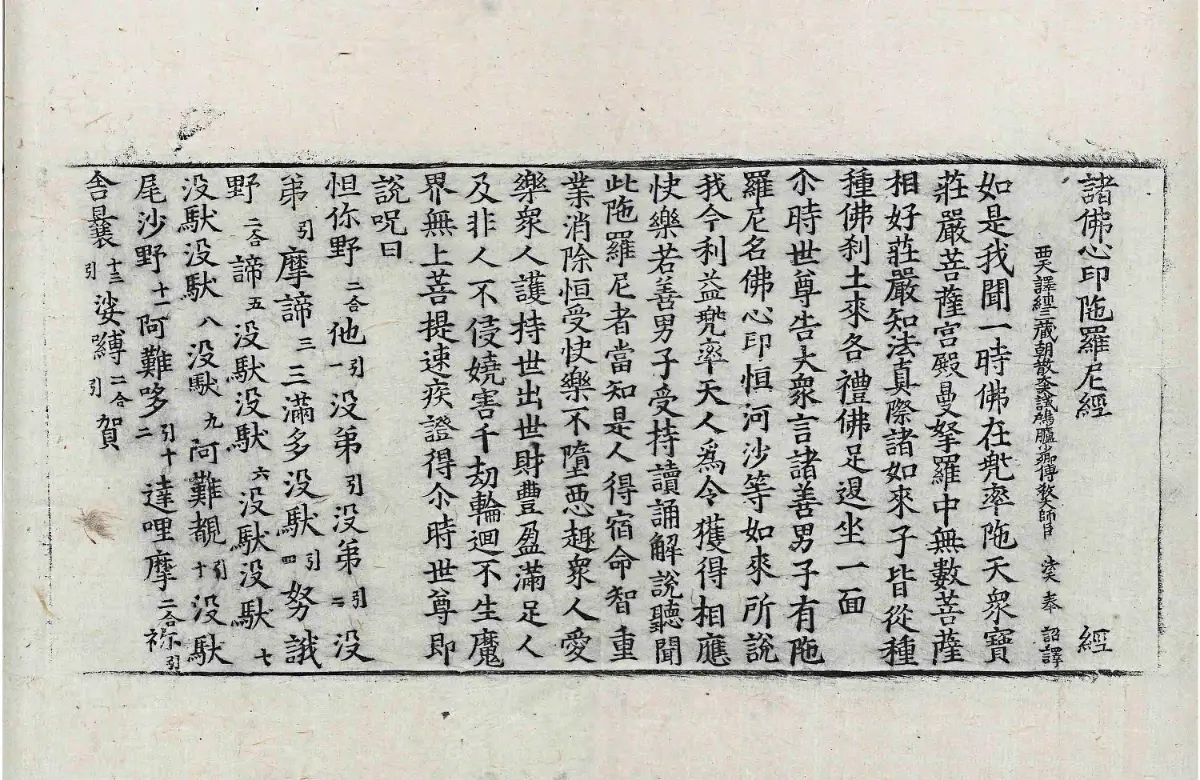 諸佛心印陁羅尼經 經
西天譯經三藏朝散大夫試鴻臚少卿傳教大師臣 法天奉 詔譯
如是我聞一時佛在兠率陁天衆寶
莊嚴菩薩宫殿曼拏羅中無數菩薩
相好莊嚴知法真際諸如來子皆從種
種佛刹土來各禮佛足退坐一面
尒時世尊告大衆言諸善男子有陁
羅尼名佛心印恒河沙等如來所說
我今利益兠率天人爲令獲得相應
快樂若善男子受持讀誦解說聽聞
此陁羅尼者當知是人得宿命智重
業消除恒受快樂不墮惡趣衆人愛
樂衆人護持世出世財豐盈滿足人
及非人不侵嬈害千劫輪迴不生魔
界無上菩提速疾證得尒時世尊即
說呪曰
怛你野二合他一引没弟引没弟二引没
弟引摩諦三三滿多没馱四引努誐
野二合諦五没馱没馱六没馱没馱七
没馱没馱八没馱九阿難覩十引没馱
尾沙野十一阿難哆十二引達哩摩二合祢引
舍曩十三引娑嚩二合引賀